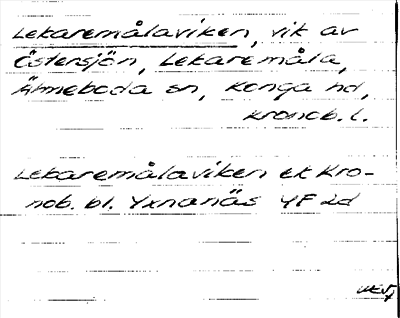 Lekaremålaviken, vik av
Östersjön, Lekaremåla,
Älmeboda sn, Konga hd,
Kronob. l.
Lekaremålaviken ek Kro-
nob. bl. Yxnanäs 4F 2d